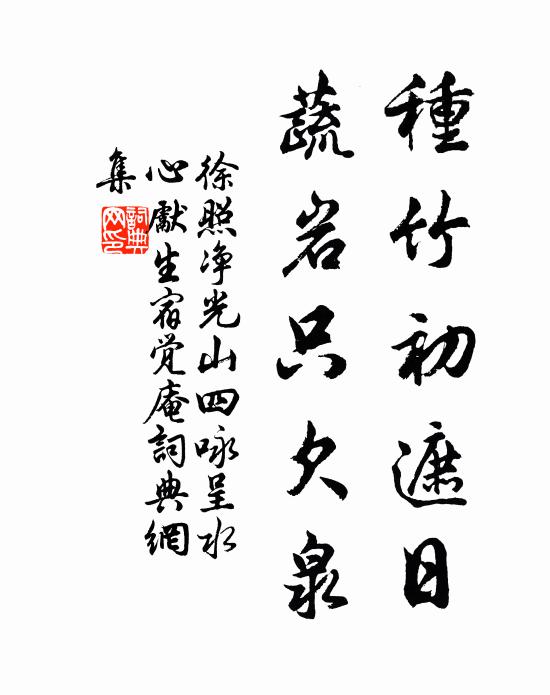 種竹初遮日
蔬岩只欠泉
徐照净光山四咏呈水
心獻生宿觉庵詞典網
集
詞典网印